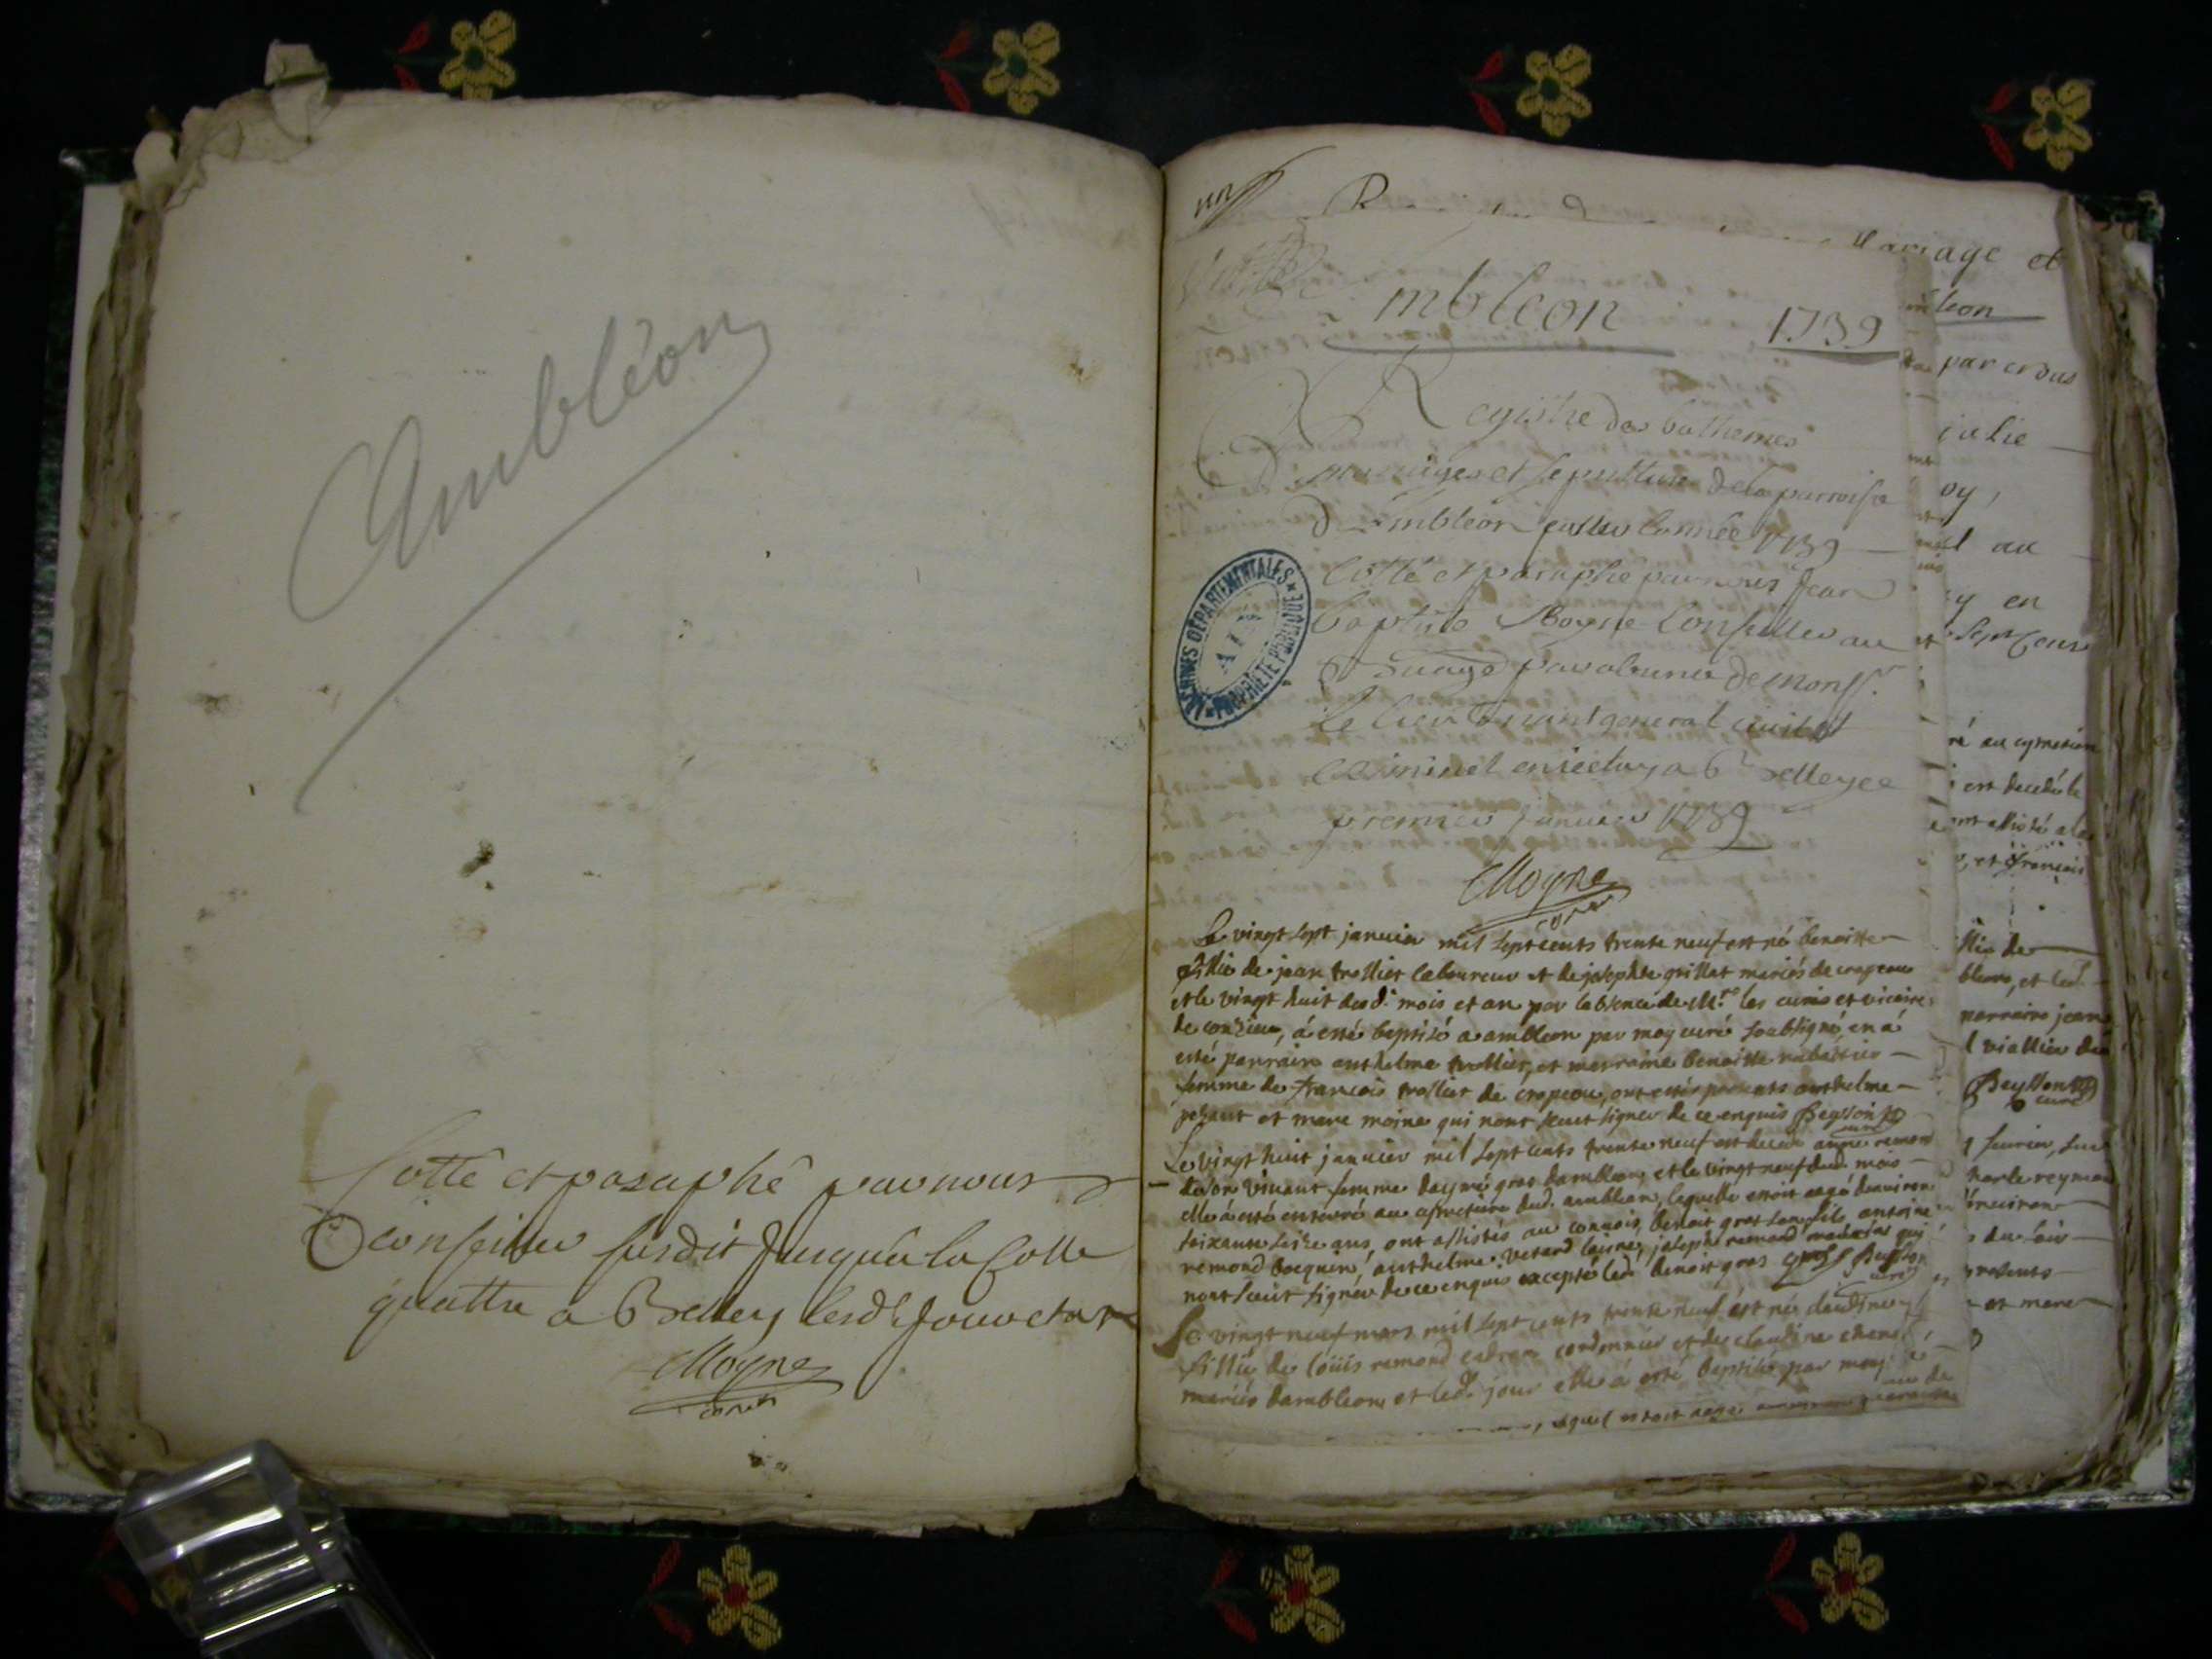 Ambléon
Cotté et paraphé par nous
conseiller susdit jusqu'à la Cotte
quattre a Belley lesd. jour et an
Moyne
Mariage et
Ambleon 1739
leon
Registre des bathemes
par
mariages et sepulture de la parroisse
d'Ambleon pour l'année 1739
oy,
l au
Cotté et paraphé par nous Jean
y en
Baptiste Moyne Conseiller au
sept cens
Bailliage pour absence de Mons.r
le lieutenant general civil et
criminel en ici a Belley ce
premier janvier 1739
Moyne
ARCHIVES DÉPARTEMENTALES
AIN
PROPRIÉTÉ PUBLIQUE
est decedé le
et françois
Le vingt sept janvier mil sept cents trente neuf est né benoitte
fillie de jean trollier laboureur et de josephte grillat mariés de crapeou
et le vingt huit dud. mois et an par labsence de Mrs les curés et vicaires
de conzieu, á esté baptisé a ambleon par moy curé soubsigné, en á
esté parrain anthelme trollier, et marraine benoitte
femme de francois trollier de crapeou, ont estés presents anthelme
et mare moine qui nont sceut signer de ce enquis Beysson
curé
Le vingt huit janvier mil sept cents trente neuf est decedé anne remond
de son vivant femme daymé gros dambleon, et le vingt neuf dud. mois
elle á esté enterré au cymetiere dud. ambleon, laquelle estoit aagé denviron
soixante seize ans, ont assistés au convois, benoit gros son fils, antoine
remond bocquin, anthelme vetard laisné, joseph remond qui
nont sceut signer de ce enquis excepté led. benoit gros gros Beysson
curé
Le vingt neuf mars mil sept cents trente neuf est né claudine
fillie de loüis remond cordonnier et de claudine
mariés dambleon, et led. jour elle á esté baptisé par moy
lequel estoit aagé
fillie de
parraine jean
Beysson
curé
fevrier
denviron
presents
et mare